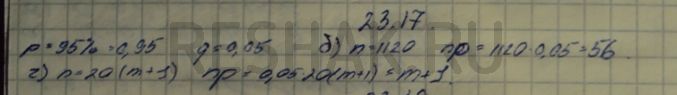 23.17.
p = 95% = 0,95 q = 0,05 б) n = 1120 np = 1120·0,05 = 56.
г) n = 20(m+1) np = 0,05·20(m+1) = m+1.
RESHAK.RU